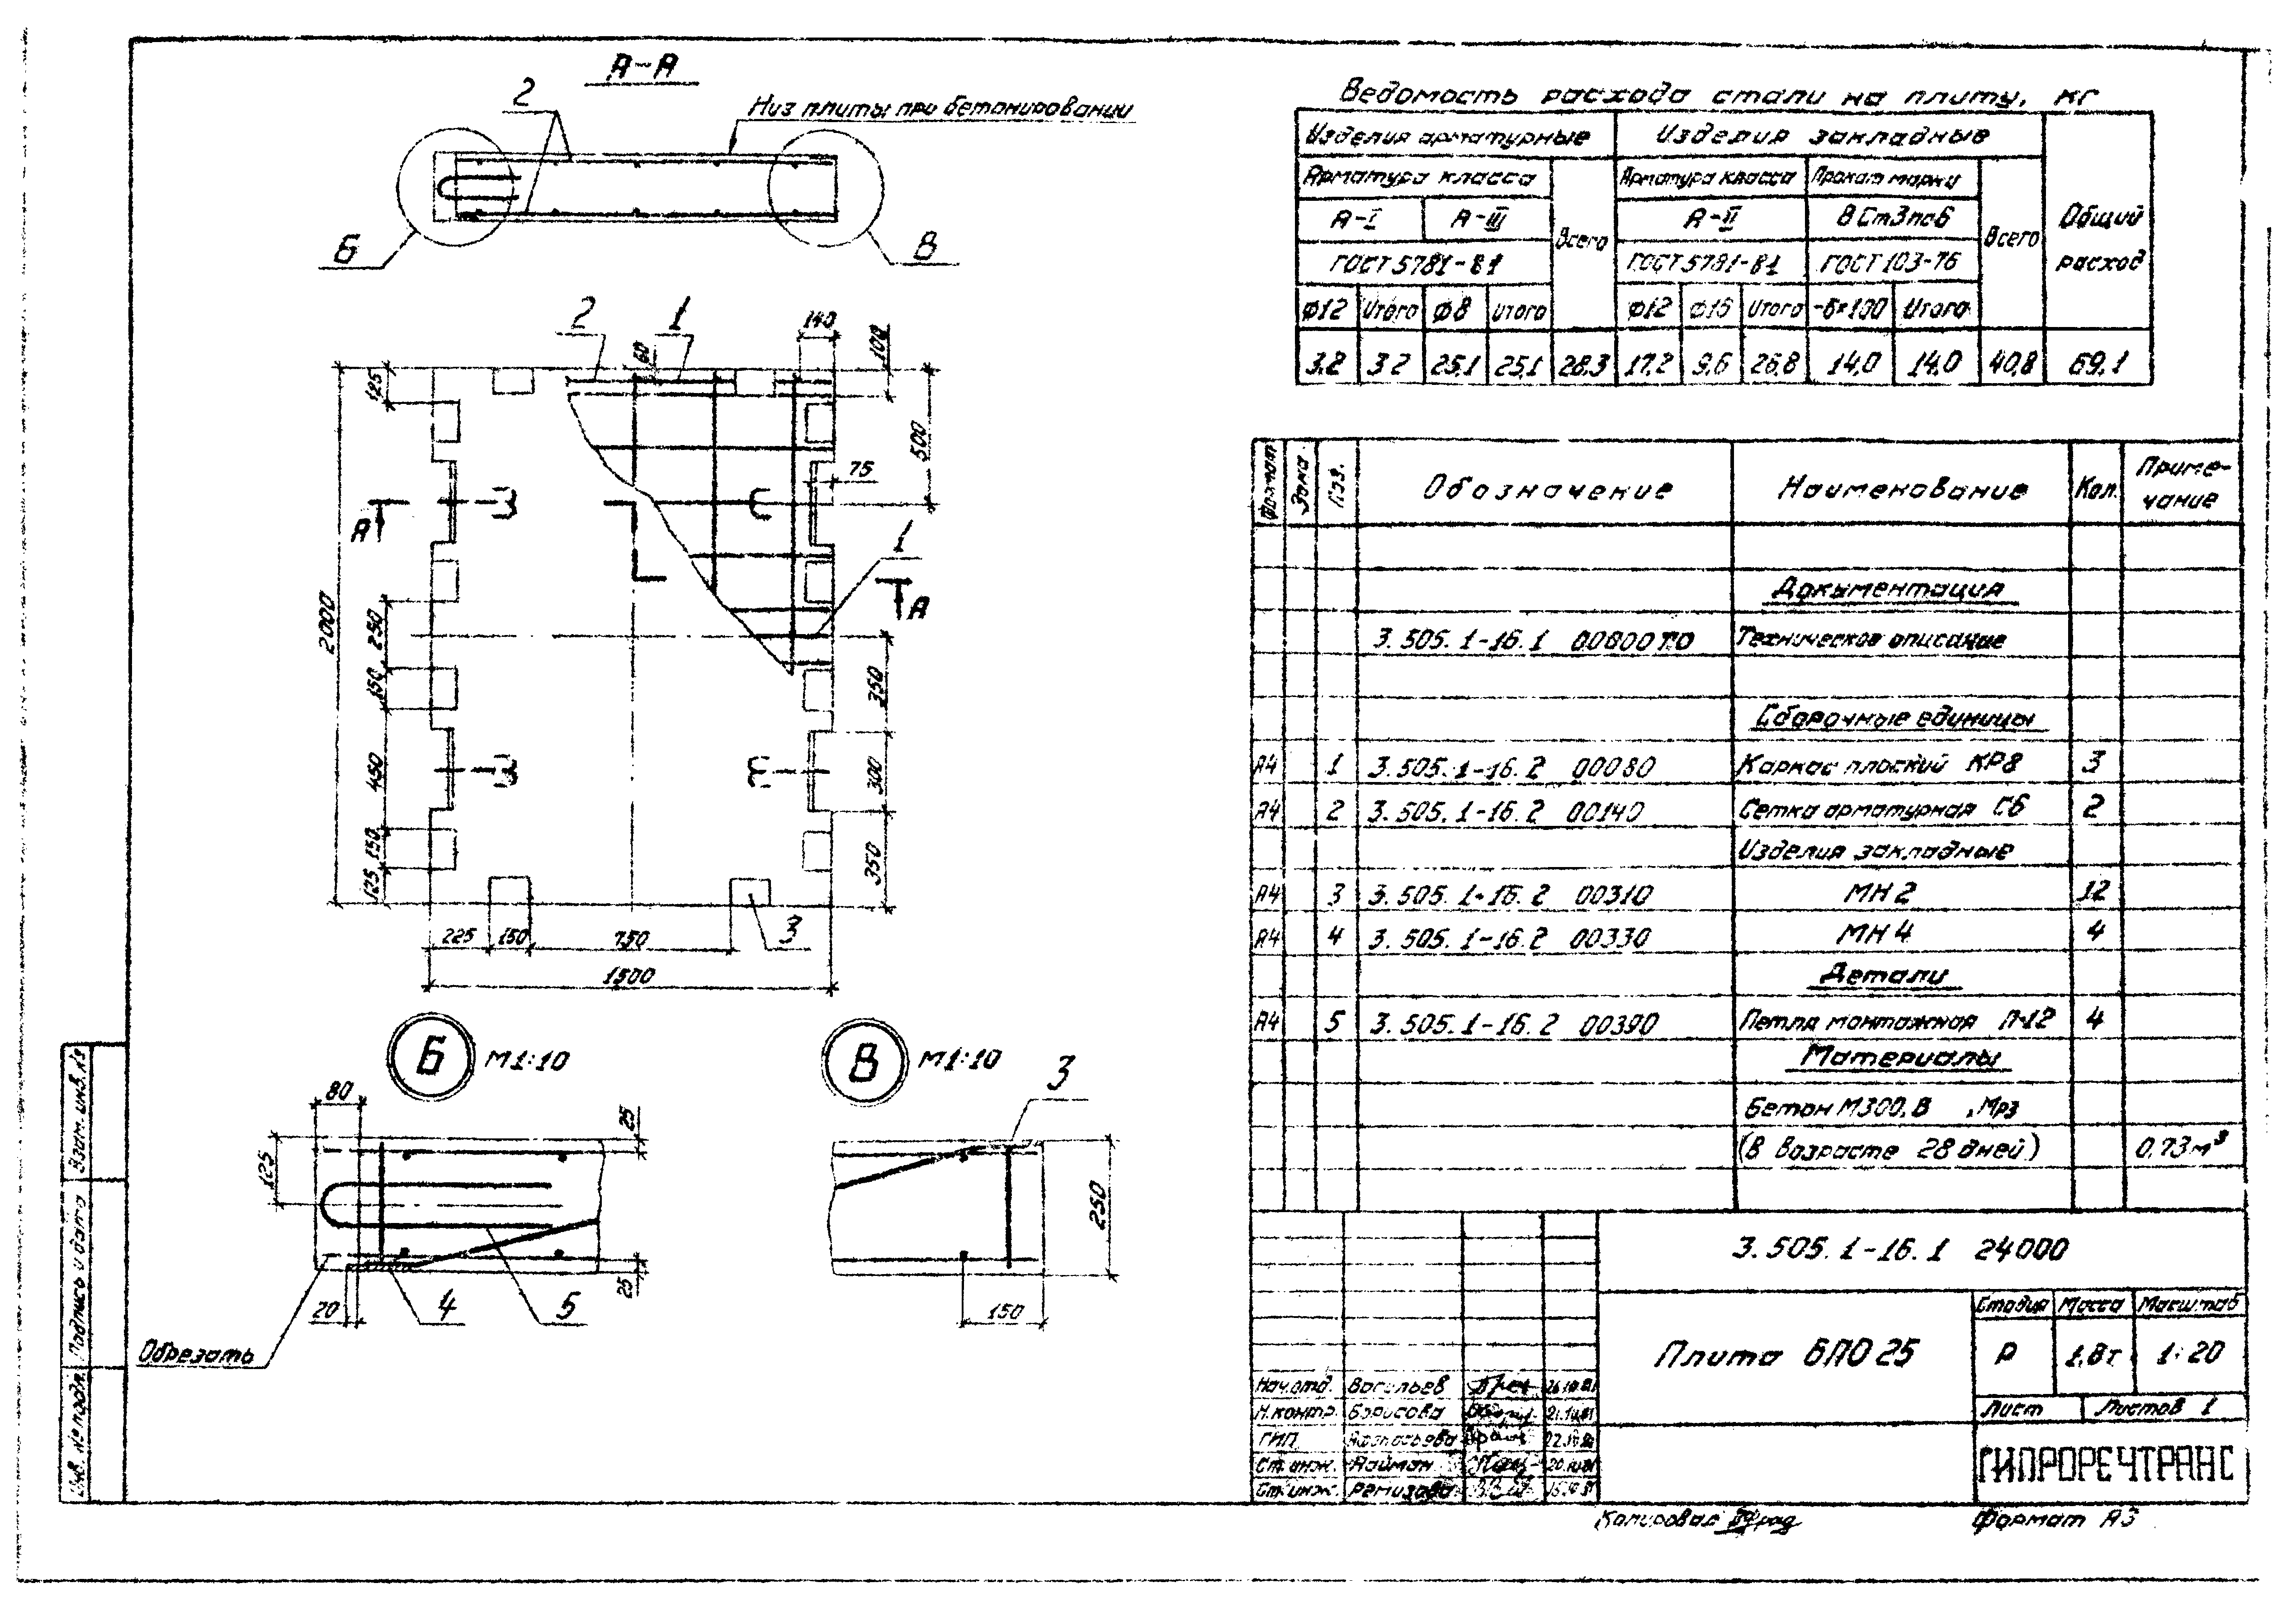 А-А
2
Низ плиты при бетонировании
Б
В
2
1
140
60
100
125
500
75
А
1
А
2000
250
150
350
450
300
150
350
125
225
150
750
3
1500
Б
М1:10
В
М1:10
3
80
25
125
250
25
20
4
5
150
Обрезать
Ведомость расхода стали на плиту, кг
Изделия арматурные
Изделия закладные
Общий расход
Арматура класса
Всего
Арматура класса
Прокат марки
Всего
А-I
А-III
А-II
ВСт3пс6
ГОСТ 5781-81
ГОСТ 5781-81
ГОСТ 103-76
Ф12 Итого Ф8 Итого Ф12 Ф16 Итого -6×100 Итого
3,2 3,2 25,1 25,1 28,3 17,2 9,6 26,8 14,0 14,0 40,8 69,1
Формат Зона Поз. Обозначение Наименование Кол. Приме-
чание
Документация
3.505.1-16.1 00000ТО Техническое описание
Сборочные единицы
А4 1 3.505.1-16.2 00080 Каркас плоский КР8 3
А4 2 3.505.1-16.2 00140 Сетка арматурная С6 2
Изделия закладные
А4 3 3.505.1-16.2 00310 МН2 12
А4 4 3.505.1-16.2 00330 МН4 4
Детали
А4 5 3.505.1-16.2 00390 Петля монтажная П-12 4
Материалы
Бетон М300, В , Мрз
(в возрасте 28 дней) 0,73 м³
3.505.1-16.1 24000
Плита БПО 25
Стадия Масса Масштаб
Р 1,8т 1:20
Лист Листов 1
ГИПРОРЕЧТРАНС
Нач.отд. Васильев
Н.контр. Борисова
ГИП
Ст.инж. Найман
Ст.инж. Ремизова
Взам. инв. №
Подпись и дата
Инв. № подл.
Копировал
Формат А3